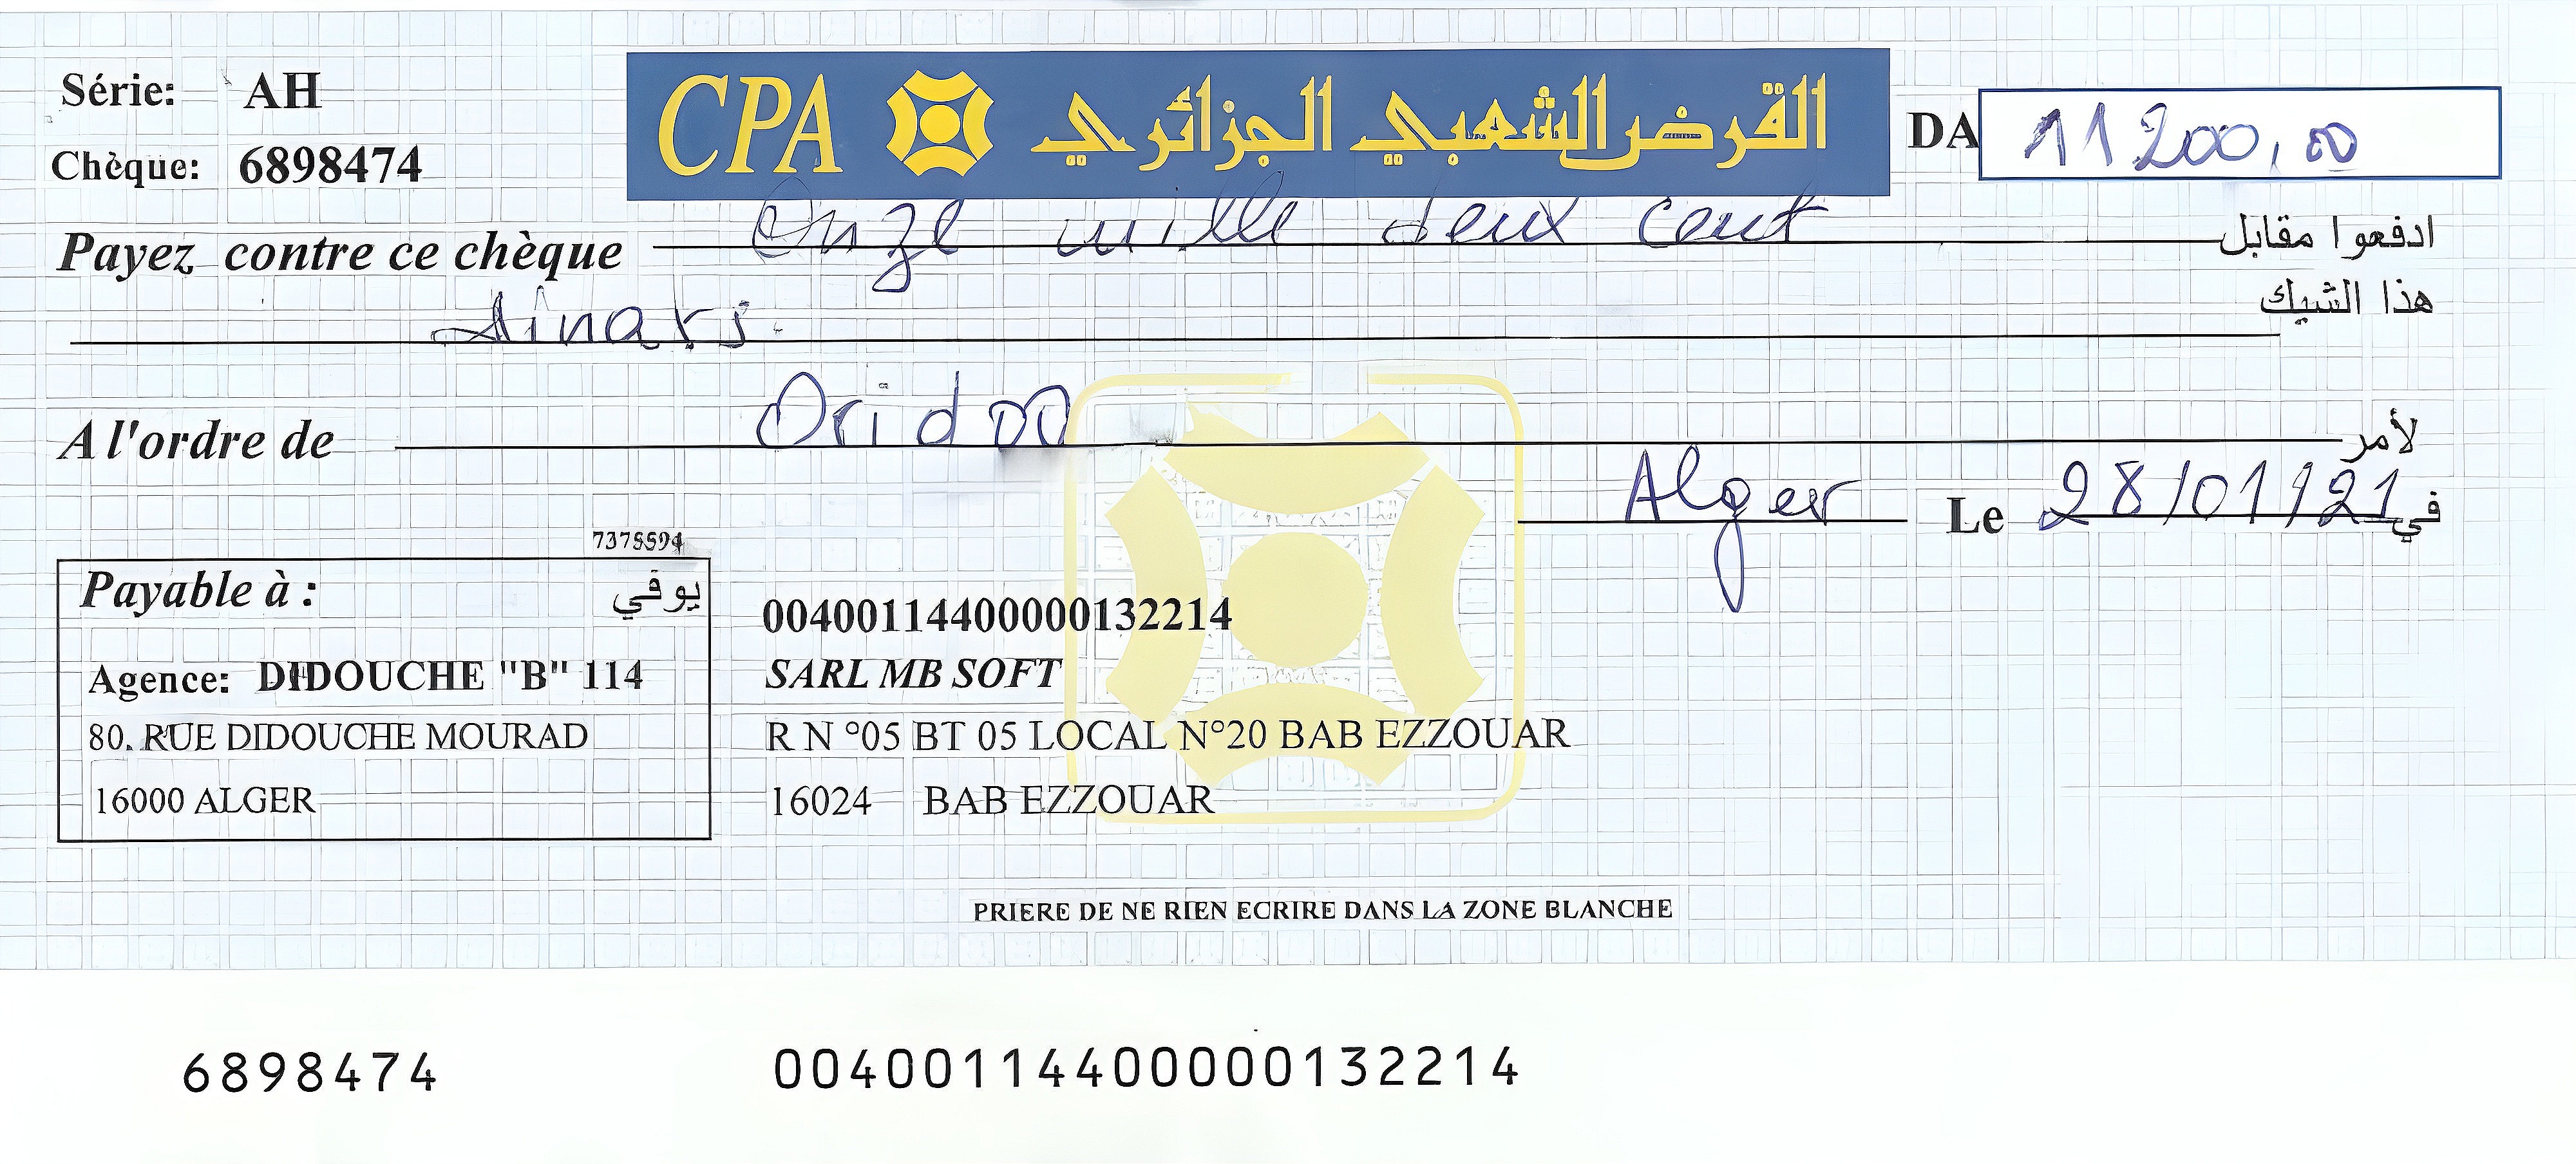 Série: AH
CPA القرض الشعبي الجزائري
DA 11 200,00
Chèque: 6898474
Payez contre ce chèque Onze mille deux cent ادفعوا مقابل
هذا الشيك
dinars.
A l'ordre de لأمر
Alger Le 28/01/21 في
7375594
Payable à : يوفي
Agence: DIDOUCHE "B" 114
80, RUE DIDOUCHE MOURAD
16000 ALGER
00400114400000132214
SARL MB SOFT
R N °05 BT 05 LOCAL N°20 BAB EZZOUAR
16024 BAB EZZOUAR
PRIERE DE NE RIEN ECRIRE DANS LA ZONE BLANCHE
6898474 00400114400000132214